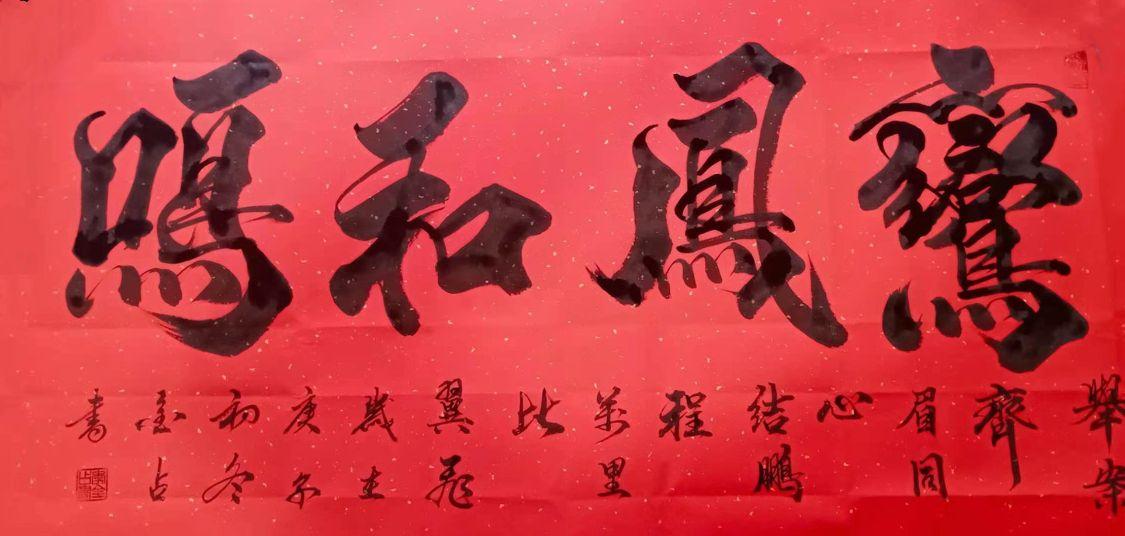 鸞鳳和鳴
舉案
齊
眉同
心
結鵬
程
萬里
比
翼飛
歲在
庚子
初冬
金占
書